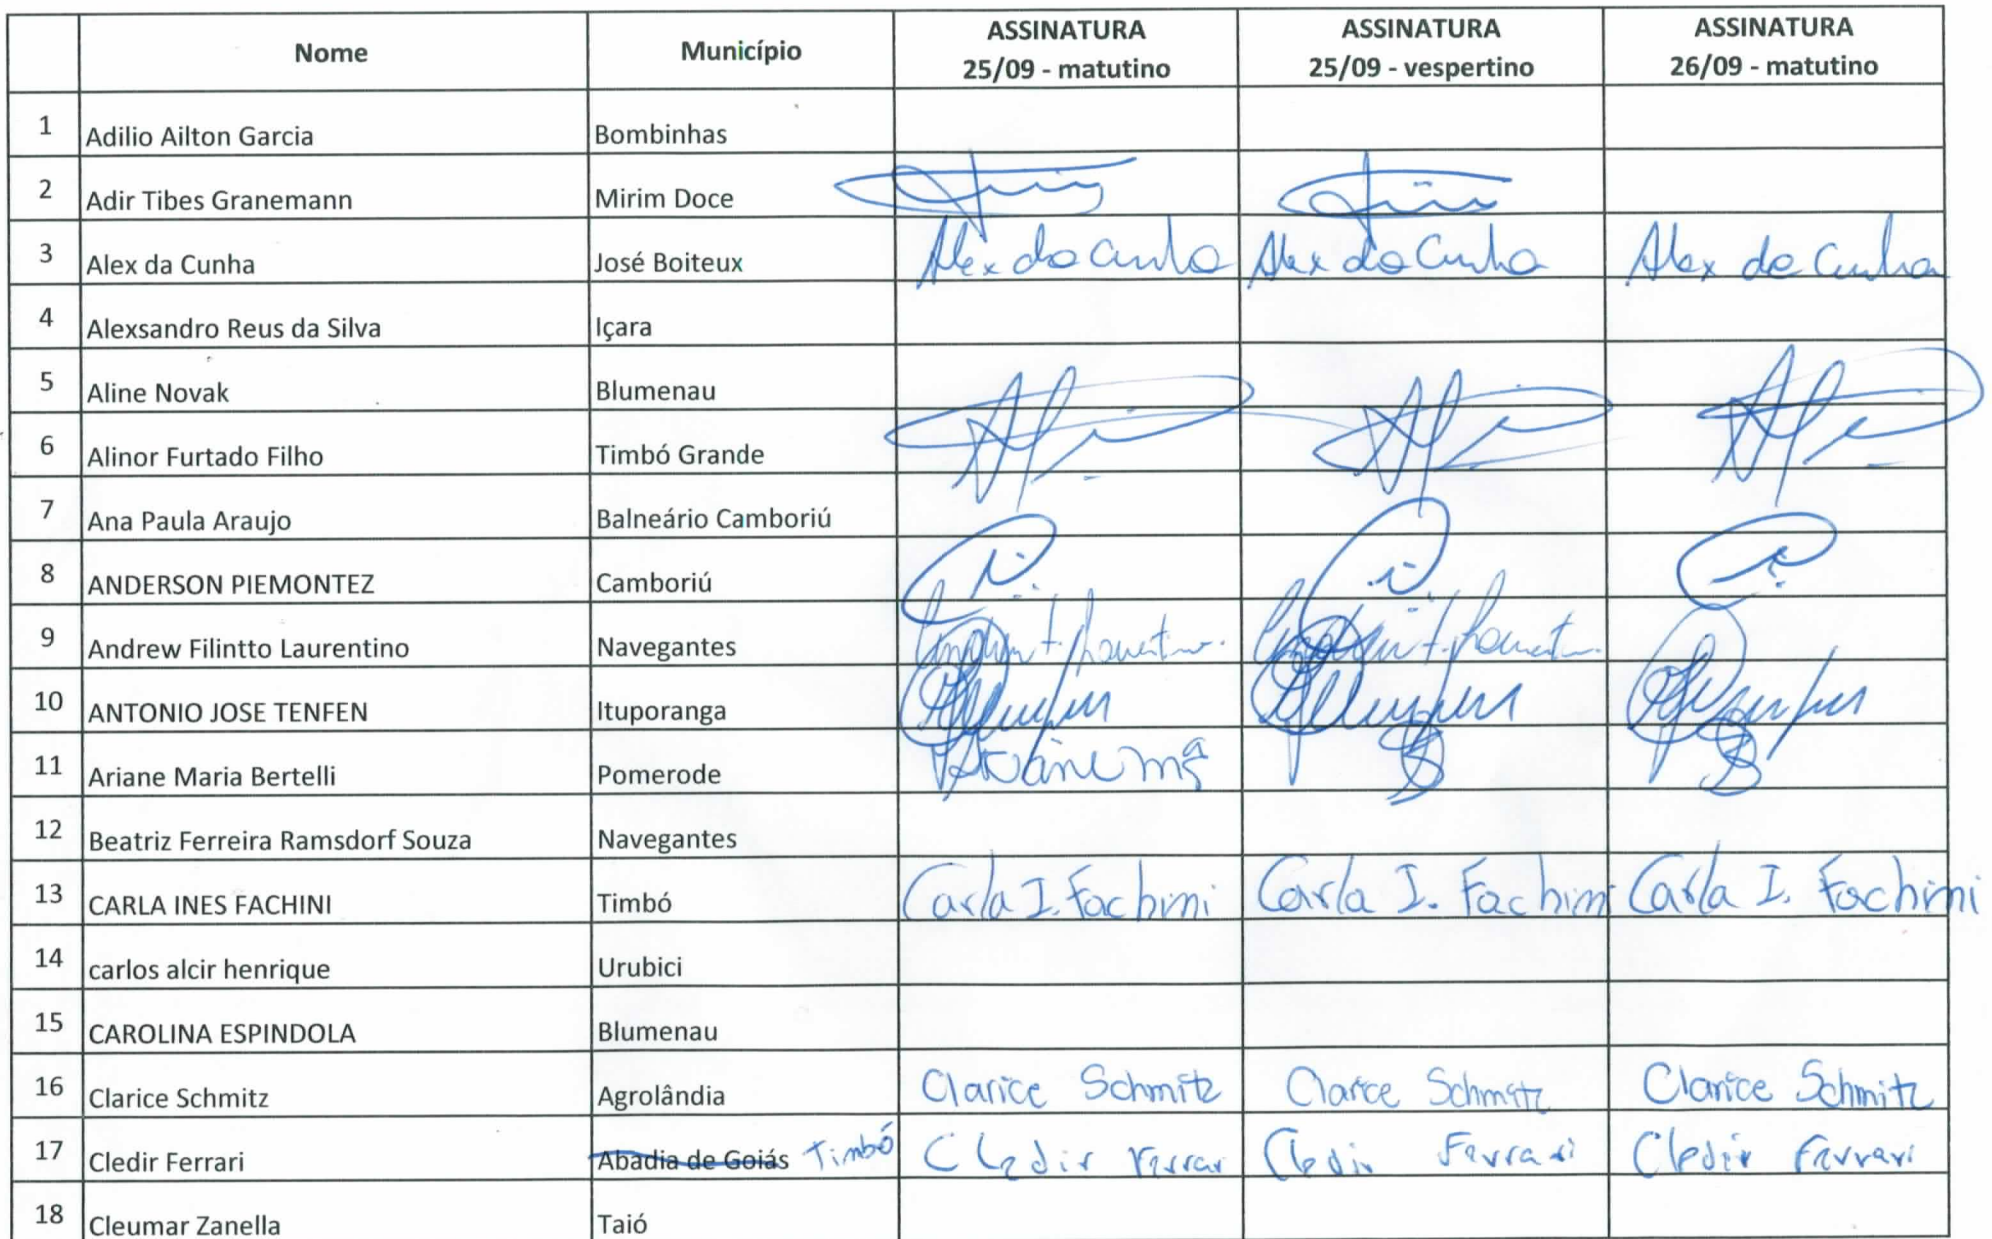 Nome Município ASSINATURA 25/09 - matutino ASSINATURA 25/09 - vespertino ASSINATURA 26/09 - matutino
1 Adilio Ailton Garcia Bombinhas
2 Adir Tibes Granemann Mirim Doce
3 Alex da Cunha José Boiteux Alex da Cunha Alex da Cunha Alex da Cunha
4 Alexsandro Reus da Silva Içara
5 Aline Novak Blumenau
6 Alinor Furtado Filho Timbó Grande
7 Ana Paula Araujo Balneário Camboriú
8 ANDERSON PIEMONTEZ Camboriú
9 Andrew Filintto Laurentino Navegantes
10 ANTONIO JOSE TENFEN Ituporanga
11 Ariane Maria Bertelli Pomerode Ariane Mª
12 Beatriz Ferreira Ramsdorf Souza Navegantes
13 CARLA INES FACHINI Timbó Carla I. Fachini Carla I. Fachini Carla I. Fachini
14 carlos alcir henrique Urubici
15 CAROLINA ESPINDOLA Blumenau
16 Clarice Schmitz Agrolândia Clarice Schmitz Clarice Schmitz Clarice Schmitz
17 Cledir Ferrari Abadia de Goiás Timbó Cledir Ferrari Cledir Ferrari Cledir Ferrari
18 Cleumar Zanella Taió